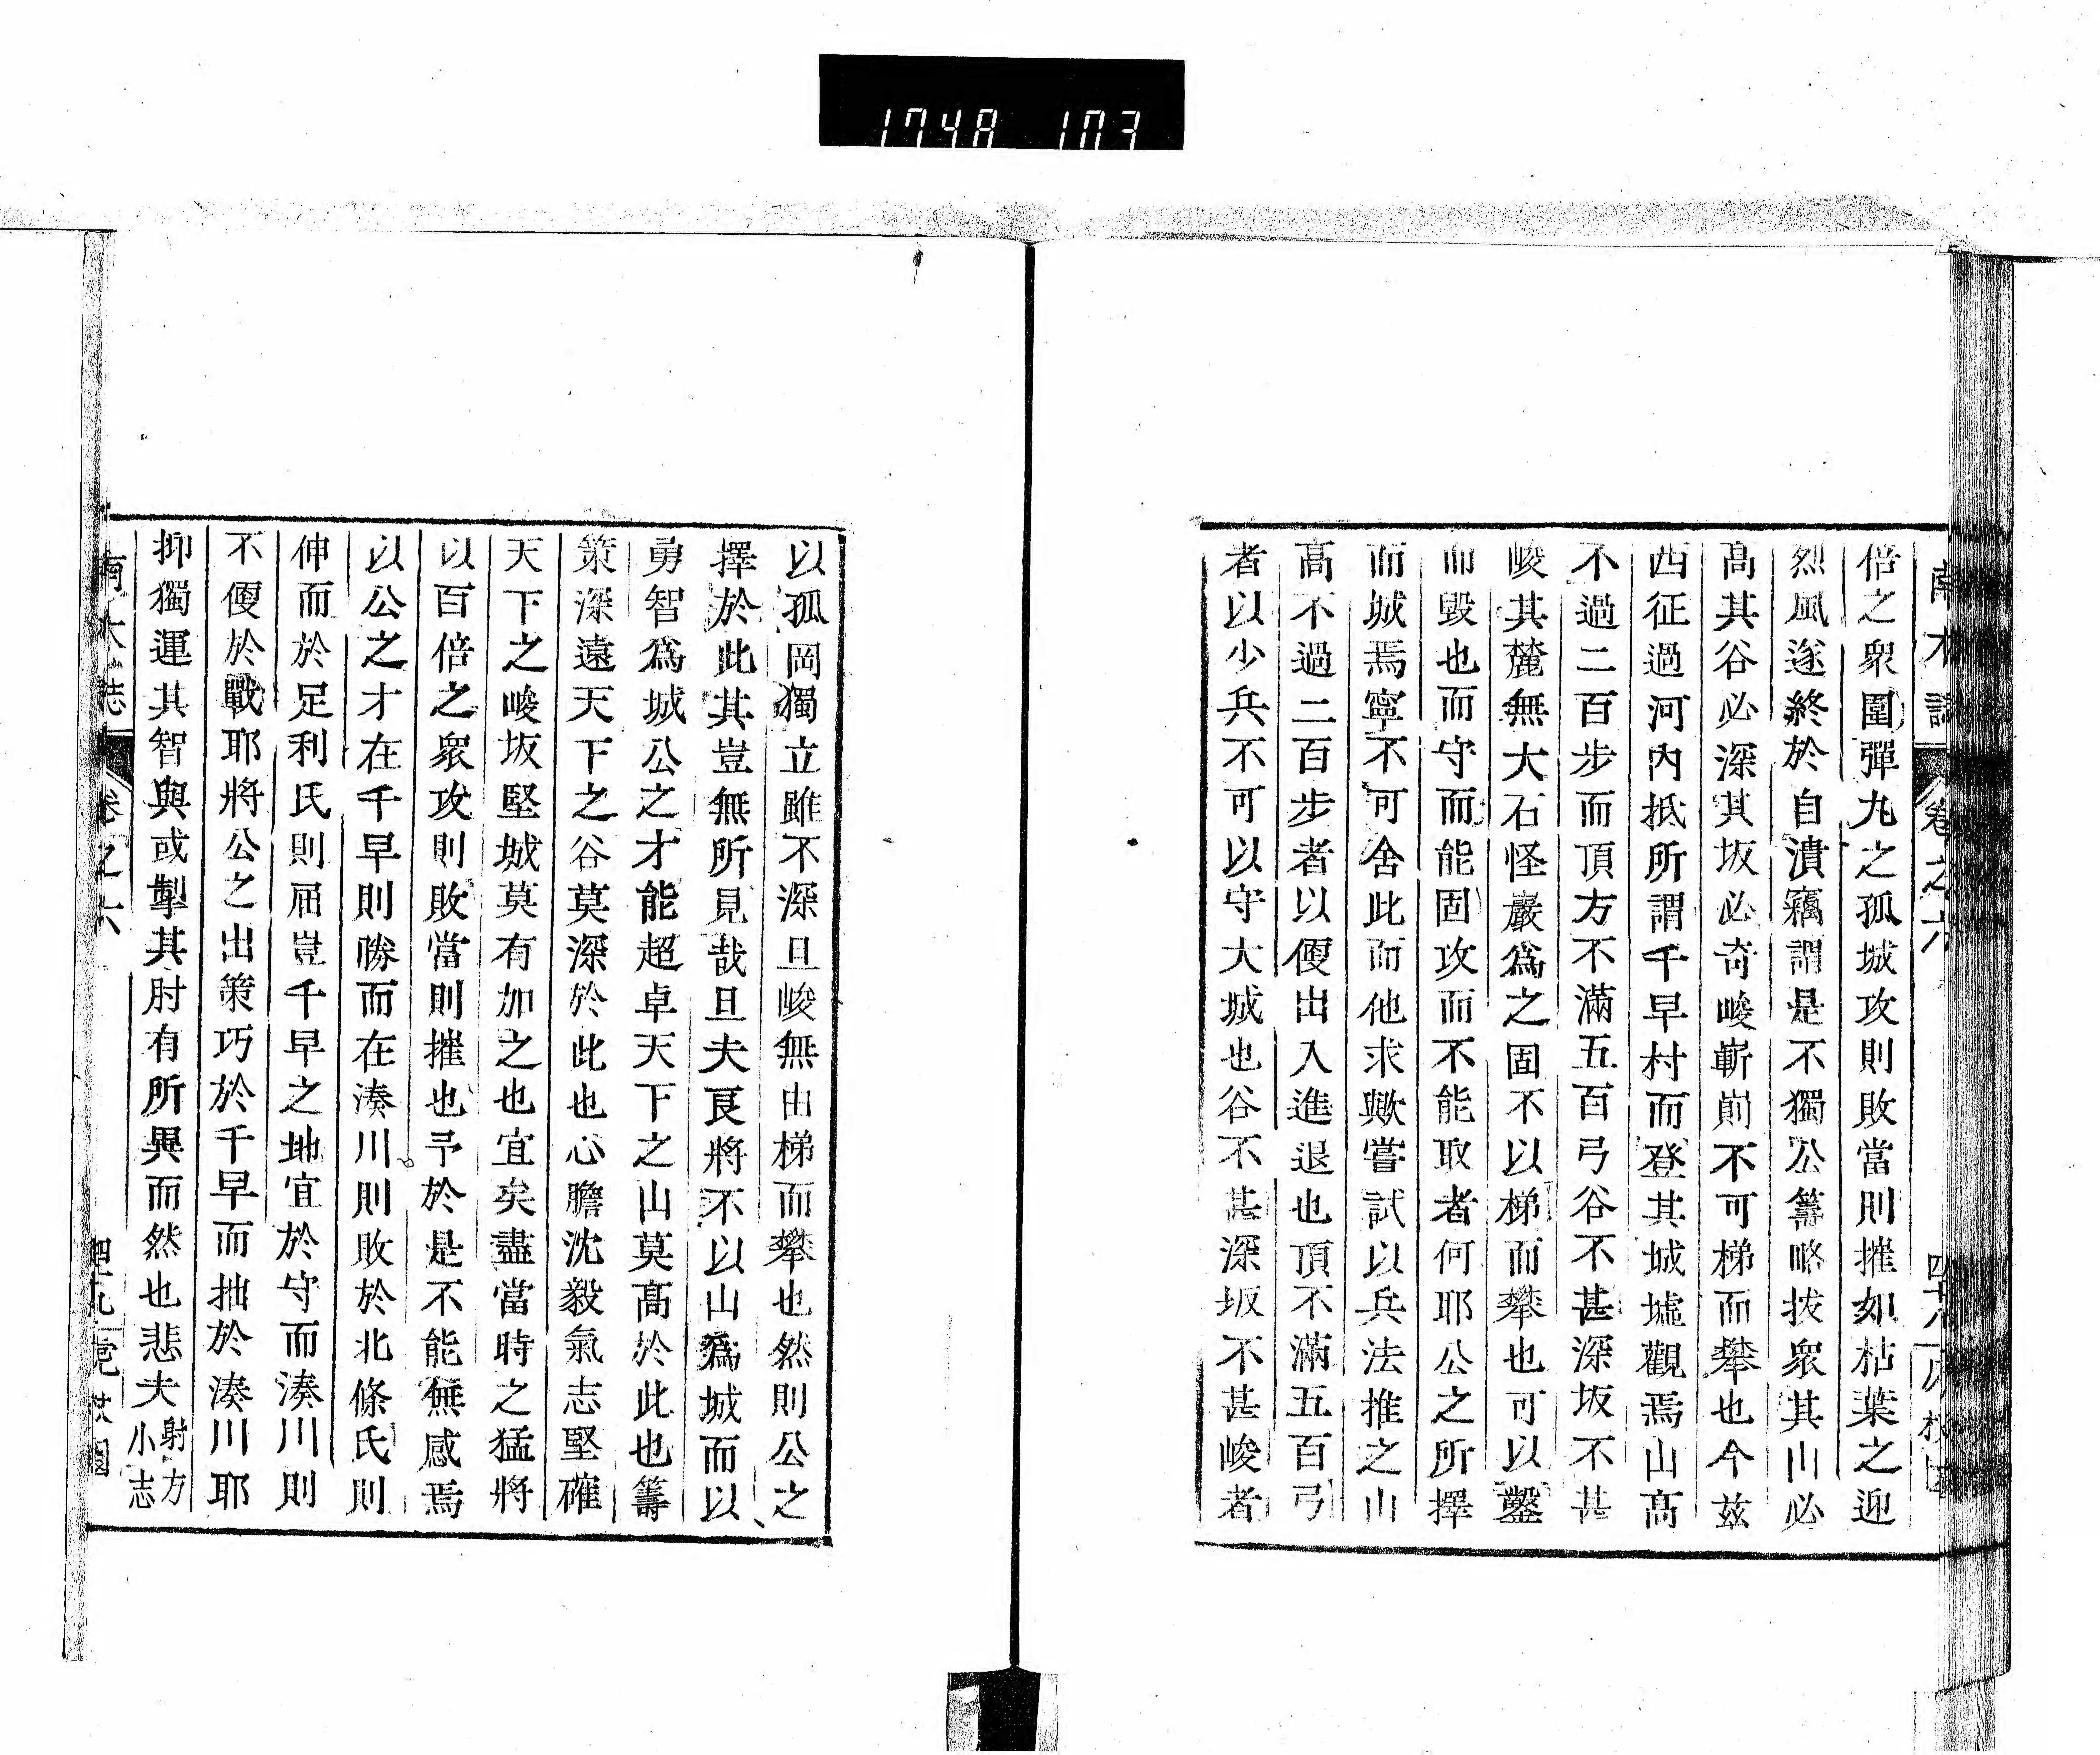 1748 103
南木誌 卷之六
倍之衆圍彈丸之孤城攻則敗當則摧如枯葉之迎
烈風遂終於自潰竊謂是不獨公籌略拔衆其山必
髙其谷必深其坂必奇峻嶄崱不可梯而攀也今玆
西征過河內抵所謂千早村而登其城墟觀焉山髙
不過二百步而頂方不滿五百弓谷不甚深坂不甚
峻其麓無大石怪巖爲之固不以梯而攀也可以鑿
而毀也而守而能固攻而不能取者何耶公之所擇
而城焉寧不可舍此而他求歟嘗試以兵法推之山
髙不過二百步者以便出入進退也頂不滿五百弓
者以少兵不可以守大城也谷不甚深坂不甚峻者
以孤岡獨立雖不深且峻無由梯而攀也然則公之
擇於此其豈無所見哉且夫良將不以山爲城而以
勇智爲城公之才能超卓天下之山莫髙於此也籌
策深遠天下之谷莫深於此也心膽沈毅氣志堅確
天下之峻坂堅城莫有加之也宜矣盡當時之猛將
以百倍之衆攻則敗當則摧也予於是不能無感焉
以公之才在千早則勝而在湊川則敗於北條氏則
伸而於足利氏則屈豈千早之地宜於守而湊川則
不便於戰耶將公之出策巧於千早而拙於湊川耶
抑獨運其智與或掣其肘有所異而然也悲夫射方小志
南木誌 卷之六